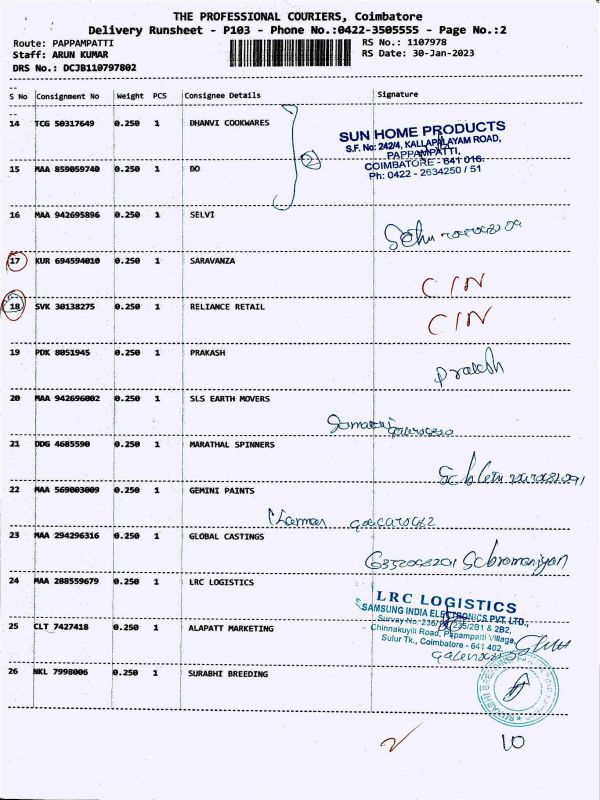 THE PROFESSIONAL COURIERS, Coimbatore
Delivery Runsheet - P103 - Phone No.:0422-3505555 - Page No.:2
Route: PAPPAMPATTI RS No.: 1107978
Staff: ARUN KUMAR RS Date: 30-Jan-2023
DRS No.: DCJB110797802
S No Consignment No Weight PCS Consignee Details Signature
14 TCG 50317649 0.250 1 DHANVI COOKWARES
SUN HOME PRODUCTS
S.F. No: 242/4, KALLAPALAYAM ROAD,
PAPPAMPATTI,
COIMBATORE - 641 016.
Ph: 0422 - 2634250 / 51
2
15 MAA 859059740 0.250 1 DO
16 MAA 942695896 0.250 1 SELVI
17 KUR 694594010 0.250 1 SARAVANZA
CIN
18 SVK 30138275 0.250 1 RELIANCE RETAIL
CIN
19 PDK 8051945 0.250 1 PRAKASH
Prakash
20 MAA 942696002 0.250 1 SLS EARTH MOVERS
21 DDG 4685590 0.250 1 MARATHAL SPINNERS
22 MAA 569003009 0.250 1 GEMINI PAINTS
23 MAA 294296316 0.250 1 GLOBAL CASTINGS
24 MAA 288559679 0.250 1 LRC LOGISTICS
LRC LOGISTICS
SAMSUNG INDIA ELECTRONICS PVT. LTD.,
Chinnakuyili Road, Papampatti Village,
Sulur Tk., Coimbatore - 641 402.
25 CLT 7427418 0.250 1 ALAPATT MARKETING
26 NKL 7998006 0.250 1 SURABHI BREEDING
2 10